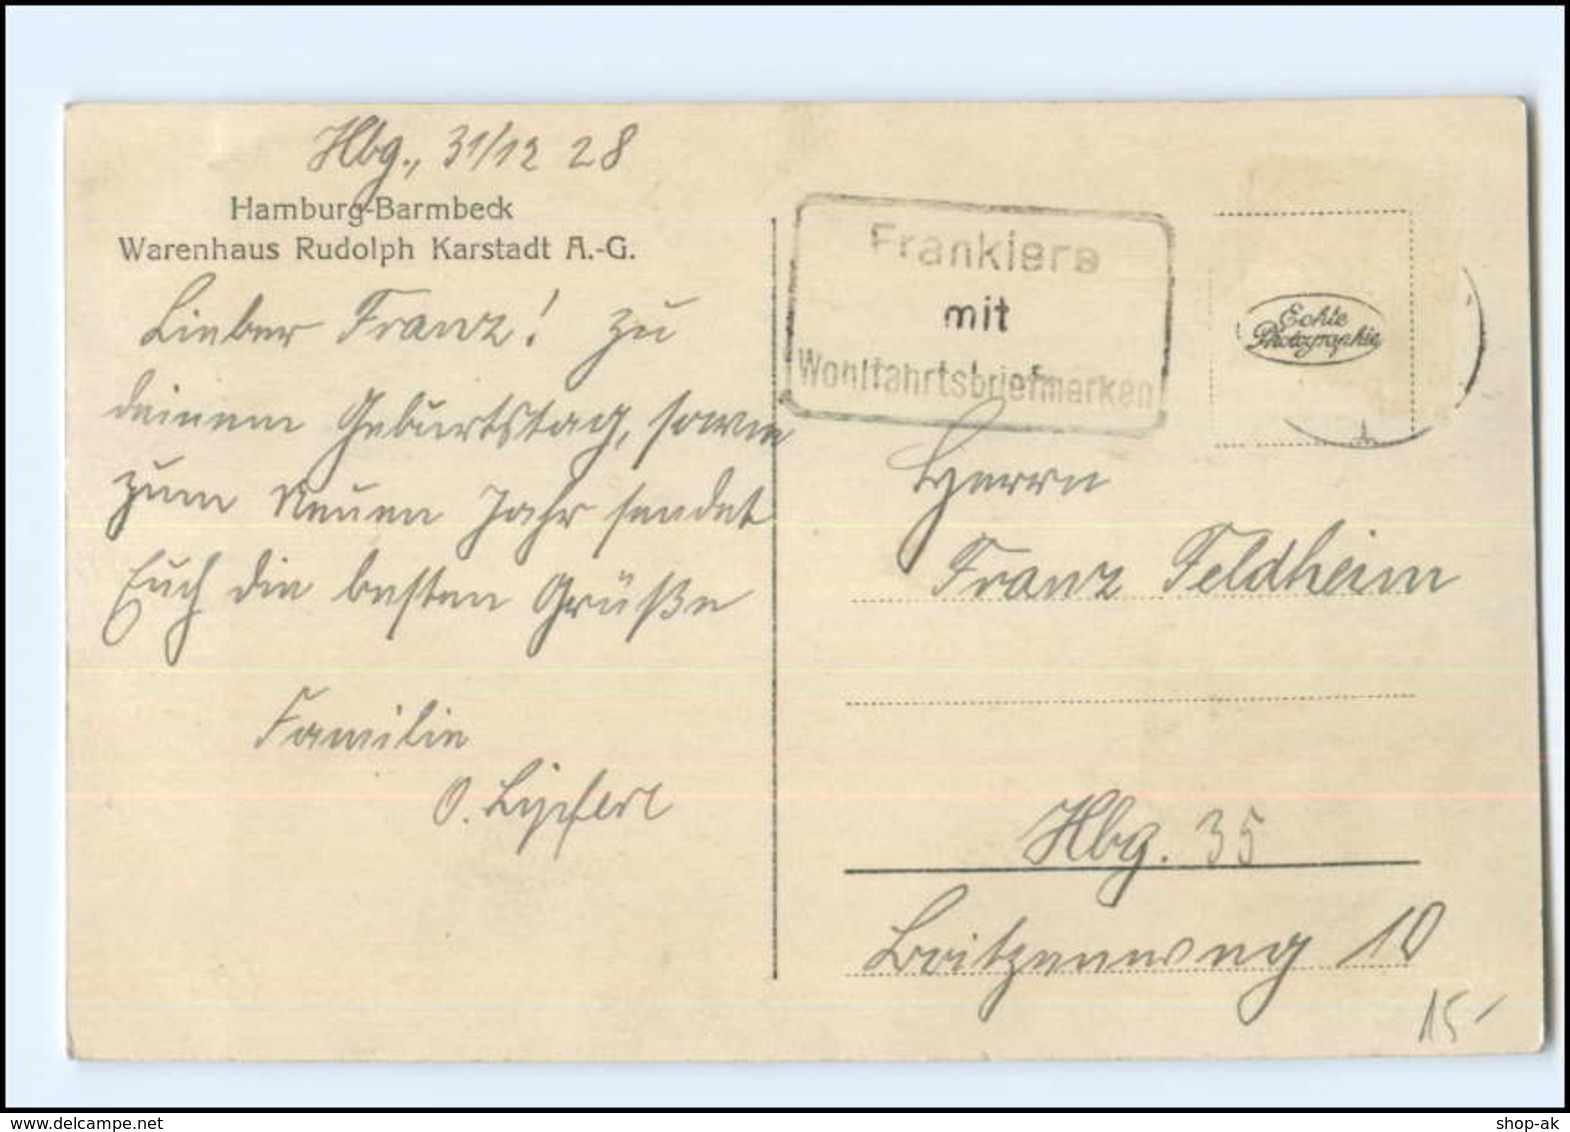 Hbg., 31/12 28
Hamburg-Barmbeck
Warenhaus Rudolph Karstadt A.-G.
Lieber Franz! Zu
deinem Geburtstag, sowie
zum Neuen Jahr sendet
Euch die besten Grüße
Familie
O. Lipfert
Frankiere
mit
Wohlfahrtsbriefmarken
Echte
Photographie
Herrn
Franz Feldheim
Hbg. 35
10
15-
shop-ak